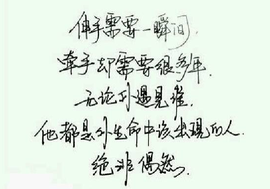 伸手需要一瞬间,
牵手却需要很多年,
无论你遇见谁,
他都是你生命中该出现的人,
绝非偶然,